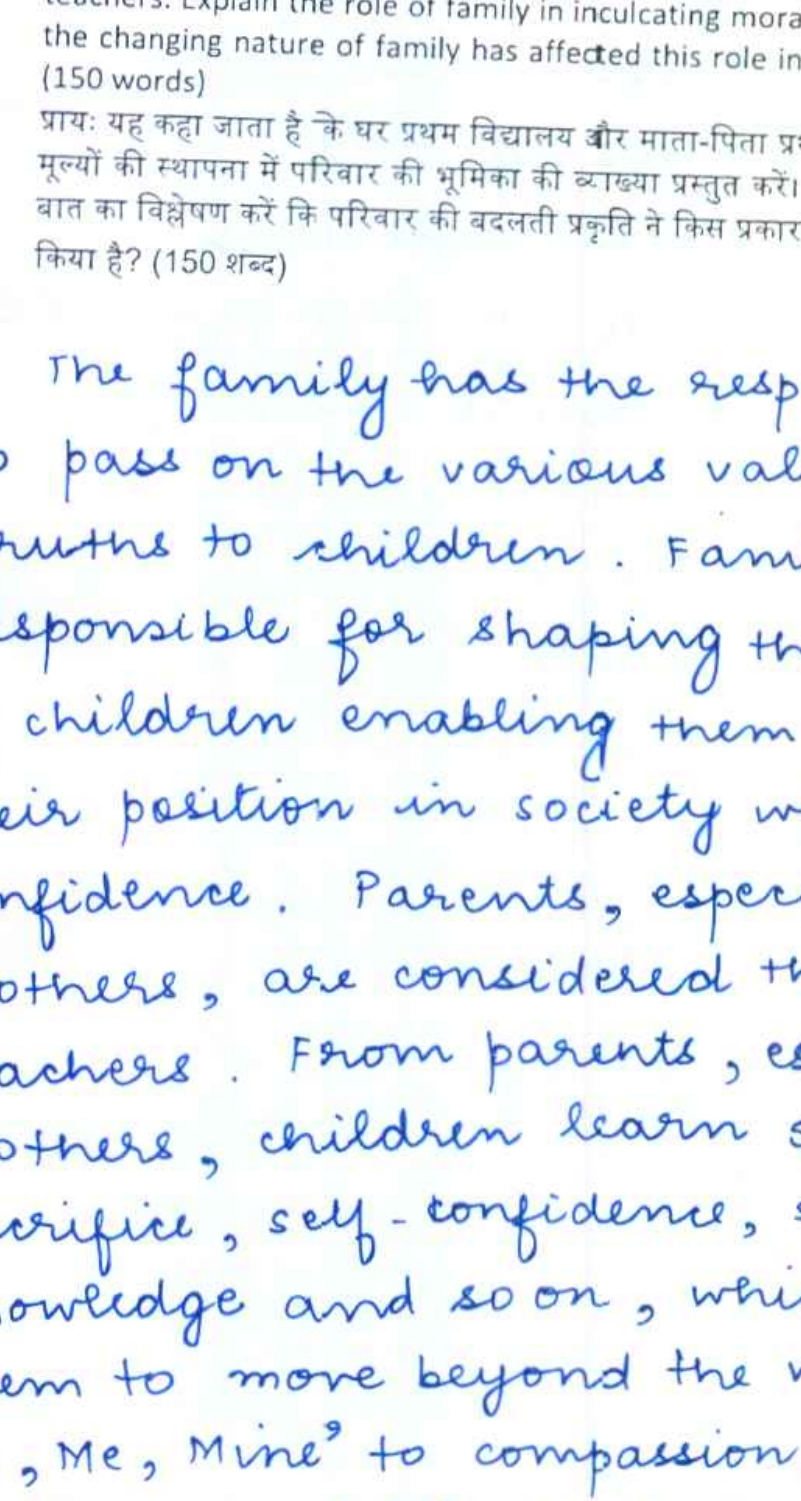 teachers. Explain the role of family in inculcating mora
the changing nature of family has affected this role in
(150 words)
प्रायः यह कहा जाता है के घर प्रथम विद्यालय और माता-पिता प्र
मूल्यों की स्थापना में परिवार की भूमिका की व्याख्या प्रस्तुत करें।
बात का विश्लेषण करें कि परिवार की बदलती प्रकृति ने किस प्रकार
किया है? (150 शब्द)
The family has the resp
pass on the various val
ruths to children. Fam
sponsible for shaping th
children enabling them
eir position in society w
nfidence. Parents, espec
others, are considered th
achers. From parents, es
others, children learn s
crifice, self-confidence, s
owledge and so on, whi
em to move beyond the
, Me, Mine' to compassion